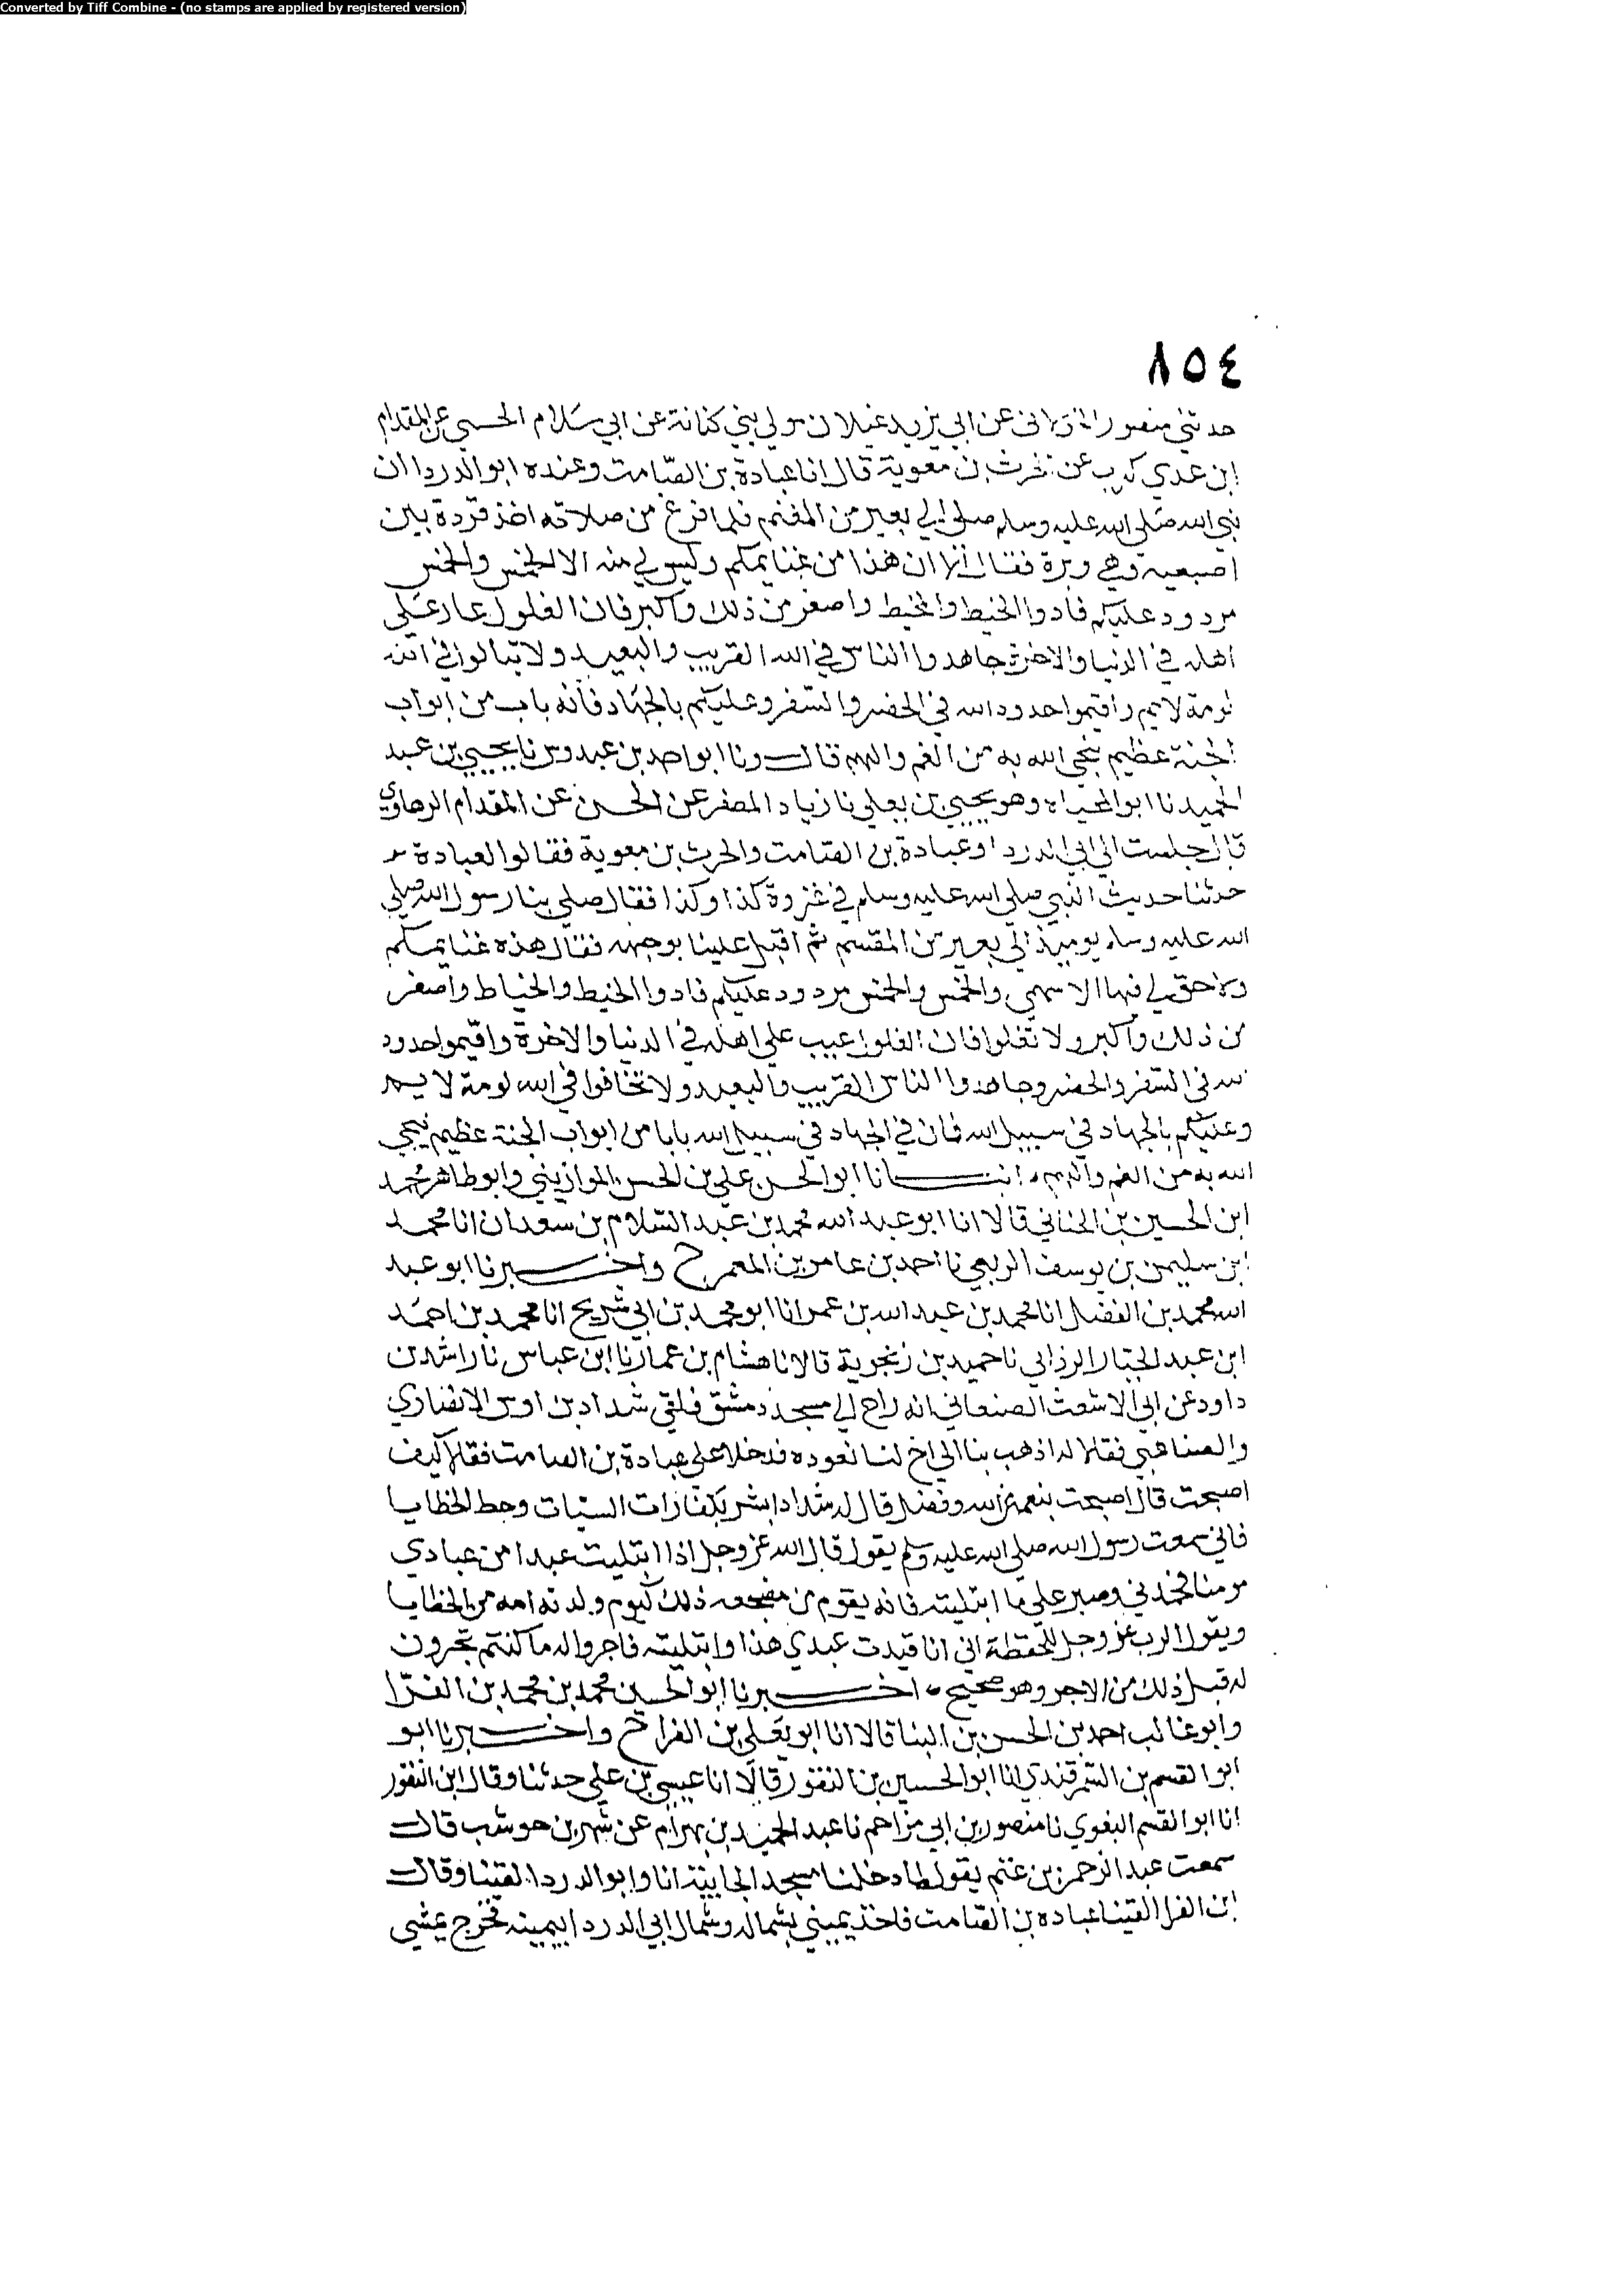 Converted by Tiff Combine - (no stamps are applied by registered version)
٨٥٤
حدثني منصور الخولاني عن ابي يزيد غيلان مولي بني كنانة عن ابي سلام الحبشي عن المقدام
ابن عدي كرب عن الحرث بن معوية قال انا عبادة بن الصامت وعنده ابو الدردا ان
نبي الله صلى الله عليه وسلم صلى الي بعير من المغنم فلما فرغ من صلاته اخذ قردة بين
اصبعيه وهي وبرة فقال الا ان هذا من غنايمكم وليس لي منه الا الخمس والخمس
مردود عليكم فادوا الخيط والمخيط واصغر من ذلك واكبر فان الغلول عار على
اهله في الدنيا والاخرة جاهدوا الناس في الله القريب والبعيد ولا تبالوا في الله
لومة لايم واقيموا حدود الله في الحضر والسفر وعليكم بالجهاد فانه باب من ابواب
الجنة عظيم ينجي الله به من الغم والهم قال ونا ابو احمد بن عبدوس نا يحيي بن عبد
الحميد نا ابو المحياه وهو يحيي بن يعلي نا زياد المصفر عن الحسن عن المقدام الرهاوي
قال جلست الي ابي الدردا وعبادة بن الصامت والحرث بن معوية فقالوا لعبادة
حدثنا حديث النبي صلي الله عليه وسلم في غزوة كذا وكذا فقال صلي بنا رسول الله صلي
الله عليه وسلم يوميذ الي بعير من المقسم ثم اقبل علينا بوجهه فقال هذه غنايمكم
ولا حق لي فيها الا سهمي والخمس والخمس مردود عليكم فادوا الخيط والخياط واصغر
من ذلك واكبر ولا تغلوا فان الغلول عيب علي اهله في الدنيا والاخرة واقيموا حدود
الله في السفر والحضر وجاهدوا الناس القريب والبعيد ولا تخافوا في الله لومة لايم
وعليكم بالجهاد في سبيل الله فان في الجهاد في سبيل الله بابا من ابواب الجنة عظيم ينجي
الله به من الغم والهم، انبانا ابو الحسن علي بن الحسن الموازيني وابو طاهر محمد
ابن الحسين بن الحنائي قالا انا ابو عبد الله محمد بن عبد السلام بن سعدان انا محمد
ابن سليمن بن يوسف الربعي نا احمد بن عامر بن المعمر ح واخبرنا ابو عبد
الله محمد بن الفضل انا محمد بن عبد الله بن عمر انا ابو محمد بن ابي شريح انا محمد بن احمد
ابن عبد الجبار الرذاني نا حميد بن زنجوية قالا نا هشام بن عمار نا ابن عباس نا راشد بن
داود عن ابي الاشعث الصنعاني انه راح الي مسجد دمشق فلقي شداد بن اوس الانصاري
والصنابحي فقالا له اذهب بنا الي اخ لنا نعوده فدخلا علي عبادة بن الصامت فقالا كيف
اصبحت قال اصبحت بنعمة من الله وفضل قال له شداد ابشر بكفارات السيات وحط الخطايا
فاني سمعت رسول الله صلي الله عليه وسلم يقول قال الله عز وجل اذا ابتليت عبدا من عبادي
مومنا فحمدني وصبر علي ما ابتليته فانه يقوم من مضجعه ذلك كيوم ولدته امه من الخطايا
ويقول الرب عز وجل للحفظة اني انا قيدت عبدي هذا وابتليته فاجروا له ما كنتم تجرون
له قبل ذلك من الاجر وهو صحيح، اخبرنا ابو الحسين محمد بن محمد بن الفرا
وابو غالب احمد بن الحسن بن البنا قالا انا ابو يعلي بن الفرا ح واخبرنا ابو
ابو القسم بن السمرقندي انا ابو الحسين بن النقور قالا انا عيسي بن علي حدثنا وقال ابن النقور
انا ابو القسم البغوي نا منصور بن ابي مزاحم نا عبد الحميد بن بهرام عن شهر بن حوشب قال
سمعت عبد الرحمن بن غنم يقول لما دخلنا مسجد الجابية انا وابو الدردا لقينا وقال
ابن الفرا القينا عباده بن الصامت فاخذ يميني بشماله وشمال ابي الدردا بيمينه فخرج يمشي